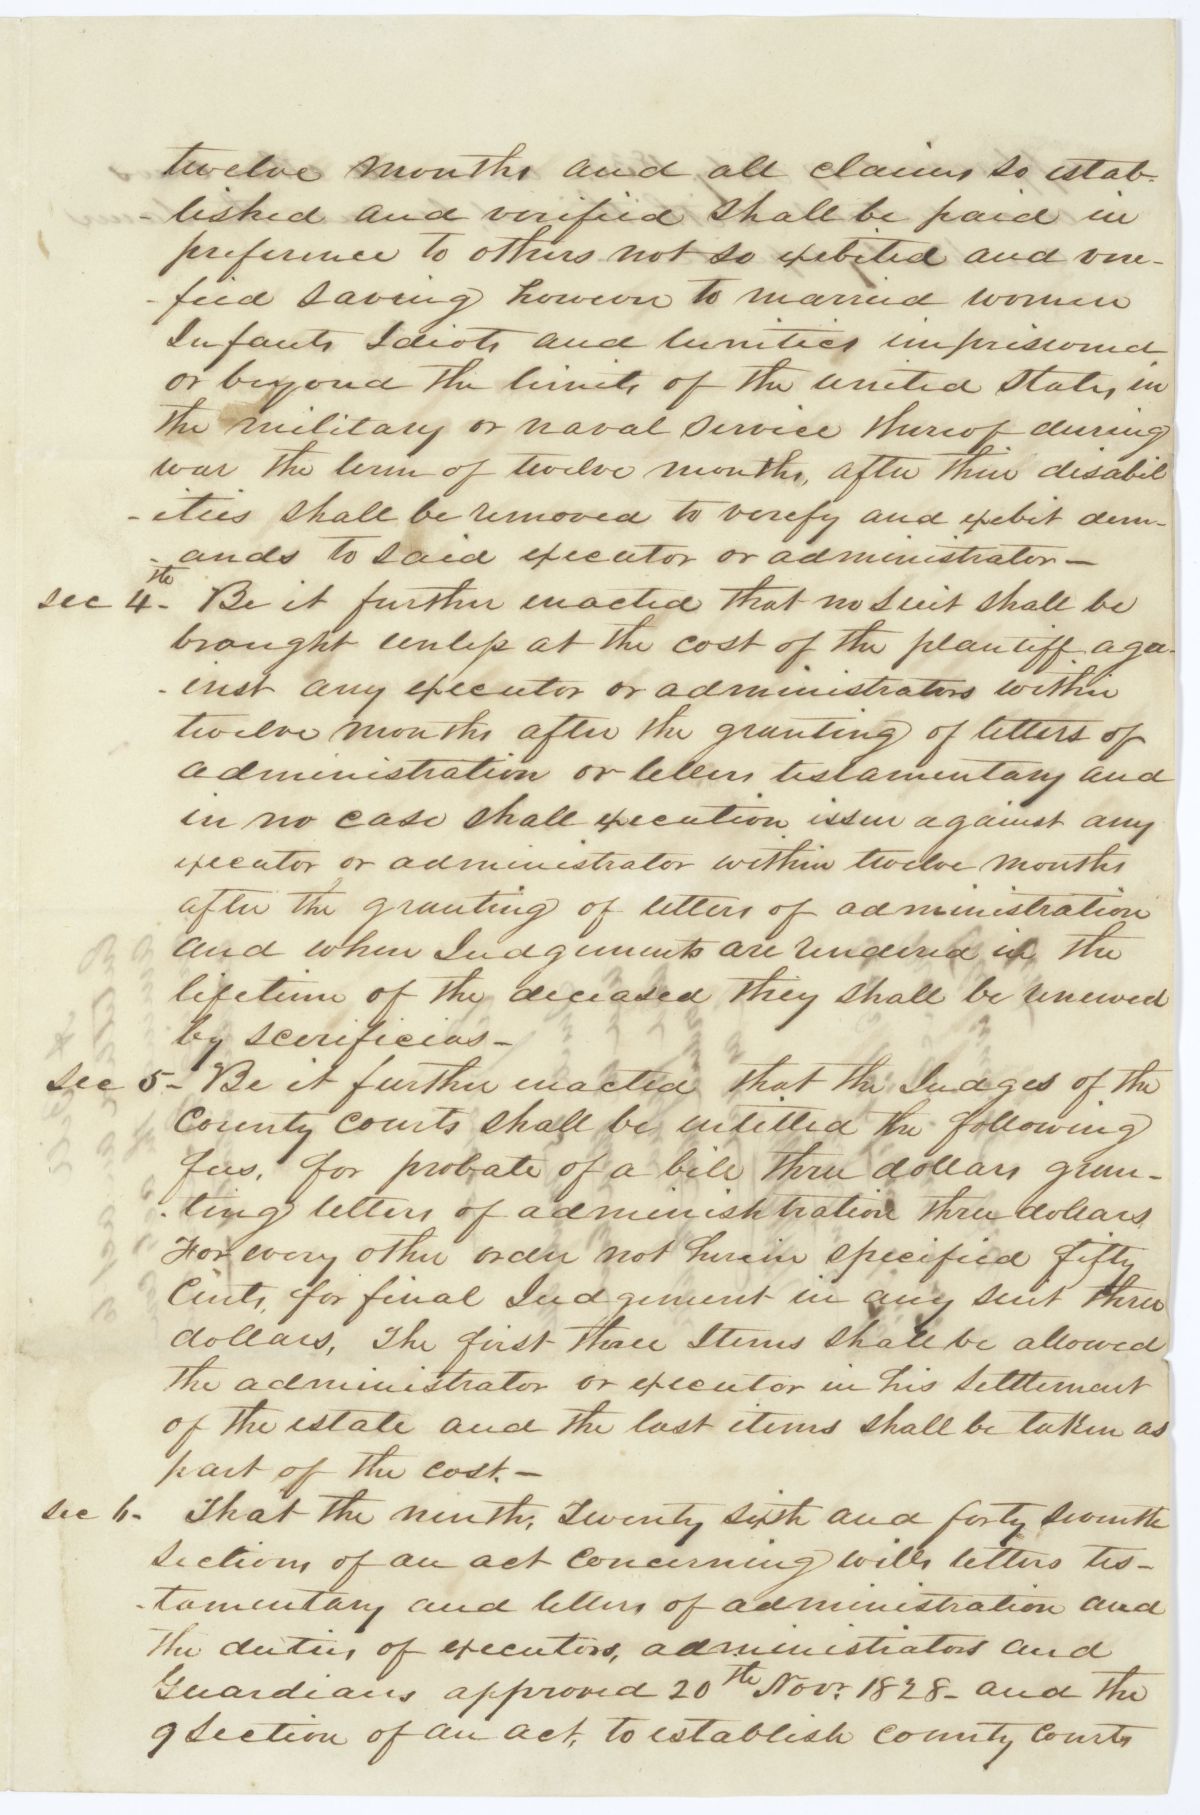 twelve months and all claims so estab-
-lished and verified shall be paid in
preference to others not so exebited and veri-
-fied saving however to married women
Infants Idiots and lunitics imprisoned
or beyond the limits of the united States, in
the military or naval service thereof during
war the term of twelve months, after their disabil
-ities shall be removed to verify and exebit dem-
-ands to said executor or administrator—
sec 4th- Be it further enacted that no suit shall be
brought unless at the cost of the plantiff aga-
-inst any executor or administrators within
twelve months after the granting of letters of
administration or letters testamentary and
in no case shall execution issue against any
executor or administrator within twelve months
after the granting of letters of administration
and when Judgements are rendered in the
lifetime of the deceased they shall be renewed
by scerificias—
Sec 5- Be it further enacted that the Judges of the
County Courts shall be intitled the following
fees. for probate of a bill three dollars gran-
-ting letters of administration three dollars
For every other order not herein specified fifty
Cents, for final Judgement in any suit three
dollars, The first three Items shall be allowed
the administrator or executor in his settlement
of the estate and the last items shall be taken as
part of the cost.—
sec 6- That the ninth, Twenty sixth and forty seventh
sections of an act concerning wills letters tes-
-tamentary and letters of administration and
the duties of executors, administrators and
Guardians approved 20th Novr. 1828- and the
9 section of an act, to establish county courts